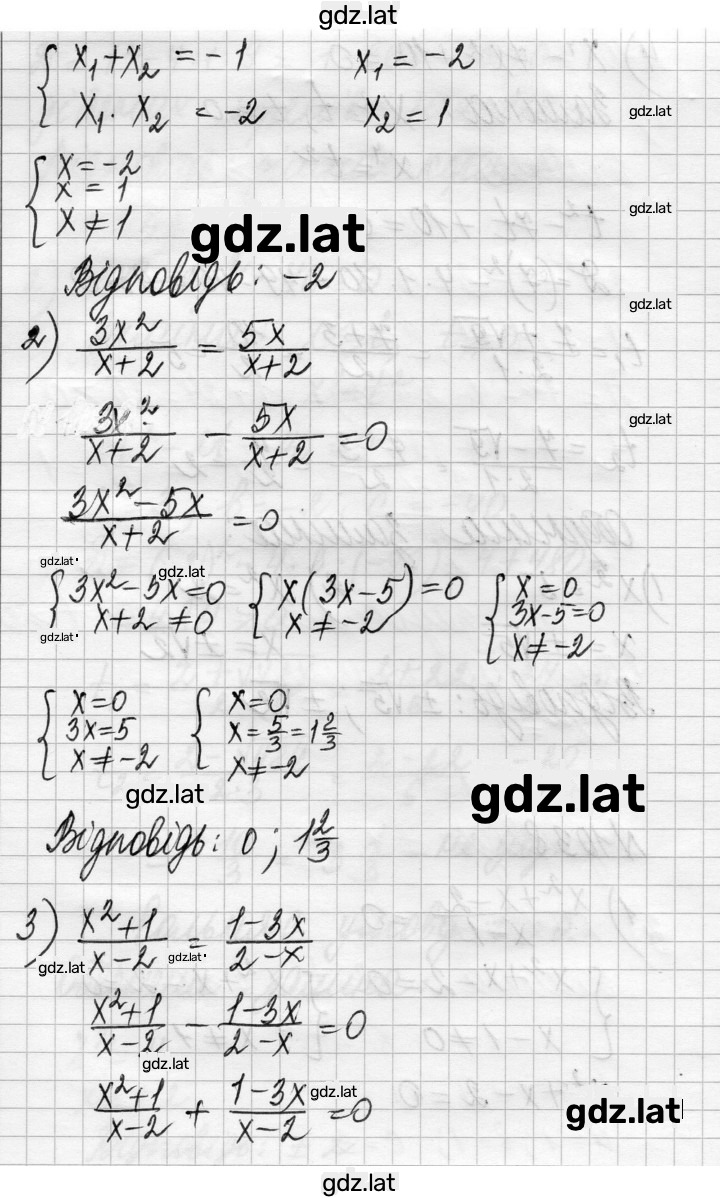 gdz.lat
{ x₁+x₂ = -1    x₁ = -2
x₁ · x₂ = -2    x₂ = 1
gdz.lat
{ x = -2
x = 1
x ≠ 1
gdz.lat
gdz.lat
Відповідь: -2
gdz.lat
2) 3x²/(x+2) = 5x/(x+2)
3x²/(x+2) - 5x/(x+2) = 0
gdz.lat
(3x²-5x)/(x+2) = 0
gdz.lat gdz.lat
{ 3x²-5x=0    { x(3x-5)=0    { x=0
x+2≠0    x≠-2    3x-5=0
gdz.lat    x≠-2
{ x=0    { x=0
3x=5    x=5/3=1 2/3
x≠-2    x≠-2
gdz.lat gdz.lat
Відповідь: 0; 1 2/3
3) (x²+1)/(x-2) = (1-3x)/(2-x)
gdz.lat gdz.lat
(x²+1)/(x-2) - (1-3x)/(2-x) = 0
gdz.lat
(x²+1)/(x-2) + (1-3x)/(x-2) = 0
gdz.lat
gdz.lat
gdz.lat